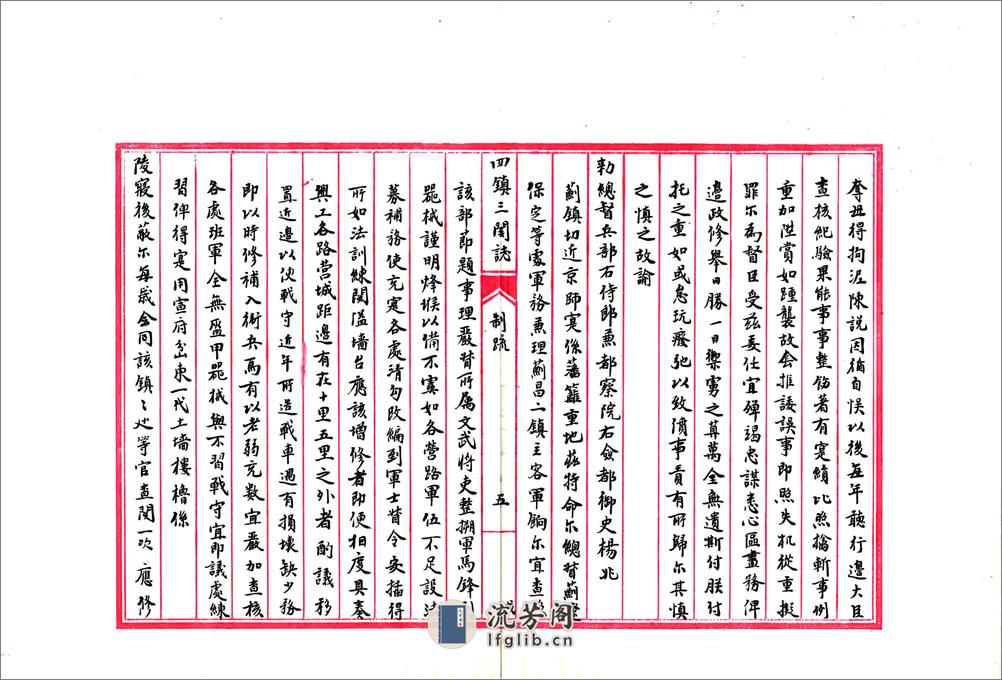 奪毋得拘泥陳説因循自悮以後每年聽行邊大臣
查核紀驗果能事事整飭著有寔績比照擒斬事例
重加陞賞如踵襲故套推諉誤事即照失机從重擬
罪尔為督臣受兹委任宜殫竭忠謀悉心區畫務俾
邊政修舉日勝一日禦虜之算萬全無遺斯付朕付
托之重如或怠玩廢弛以致僨事責有所歸尔其慎
之慎之故諭
勅總督兵部右侍郎兼都察院右僉都御史楊兆
薊鎮切近京師寔係藩籬重地茲特命尔總督薊遼
保定等處軍務兼理薊昌二鎮主客軍餉尔宜查
該部節題事理嚴督所属文武將吏整搠軍馬鋒利
器械謹明烽堠以備不虞如各營路軍伍不足設法
募補務使充寔各處清勾改編到軍士督令安插得
所如法訓練関隘墻台應該增修者即便相度具奏
興工各路营城距邊有在十里五里之外者酌議移
置近邊以便戰守近年所造戰車遇有損壞缺少務
即以時修補入衛兵馬有以老弱充数宜嚴加查核
各處班軍全無盔甲器械與不習戰守宜即議處練
習俾得寔用宣府岔東一代土墻樓櫓係
陵寢後蔽尔每歲会同該鎮〻廵等官查閲一次應修
四鎮三関誌
制疏
五
流芳阁
lfglib.cn